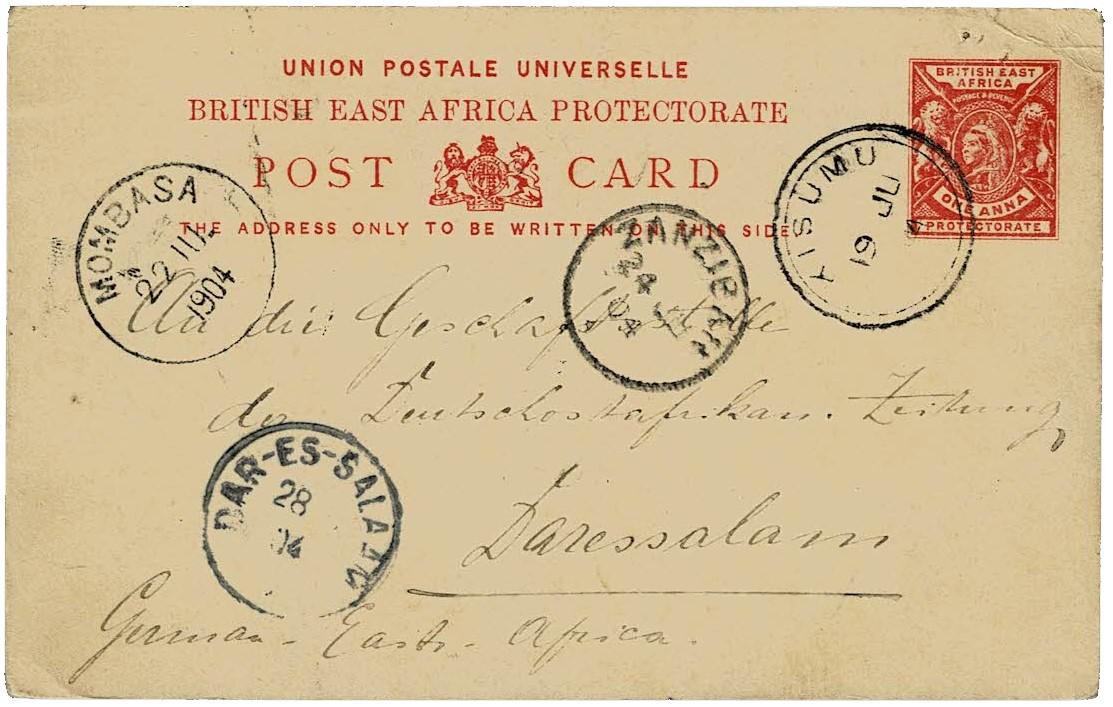 UNION POSTALE UNIVERSELLE
BRITISH EAST AFRICA PROTECTORATE
POST CARD
THE ADDRESS ONLY TO BE WRITTEN ON THIS SIDE
BRITISH EAST
AFRICA
POSTAGE & REVENUE
ONE ANNA
PROTECTORATE
KISUMU
19
MOMBASA
22 JUL
1904
ZANZIBAR
24
04
An die Geschäftsstelle
der Deutschostafrikan. Zeitung
Daressalam
DAR-ES-SALAAM
28
04
German-East-Africa.